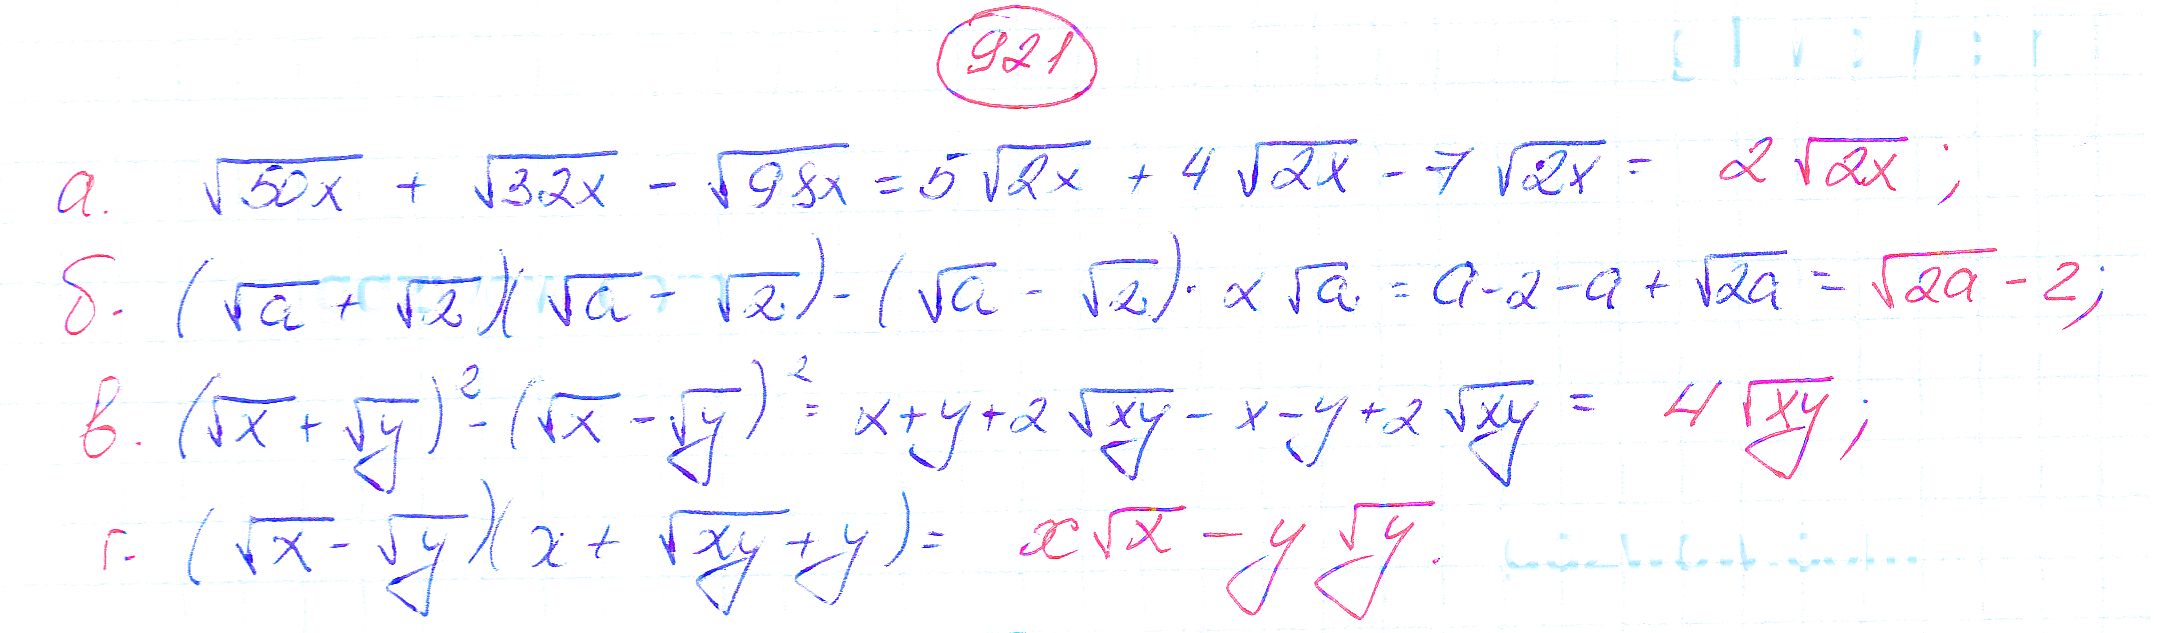 921
а. √50x + √32x - √98x = 5√2x + 4√2x - 7√2x = 2√2x;
б. (√a + √2)(√a - √2) - (√a - √2) · x √a = a - 2 - a + √2a = √2a - 2;
в. (√x + √y)² - (√x - √y)² = x + y + 2√xy - x - y + 2√xy = 4√xy;
г. (√x - √y)(x + √xy + y) = x√x - y√y.